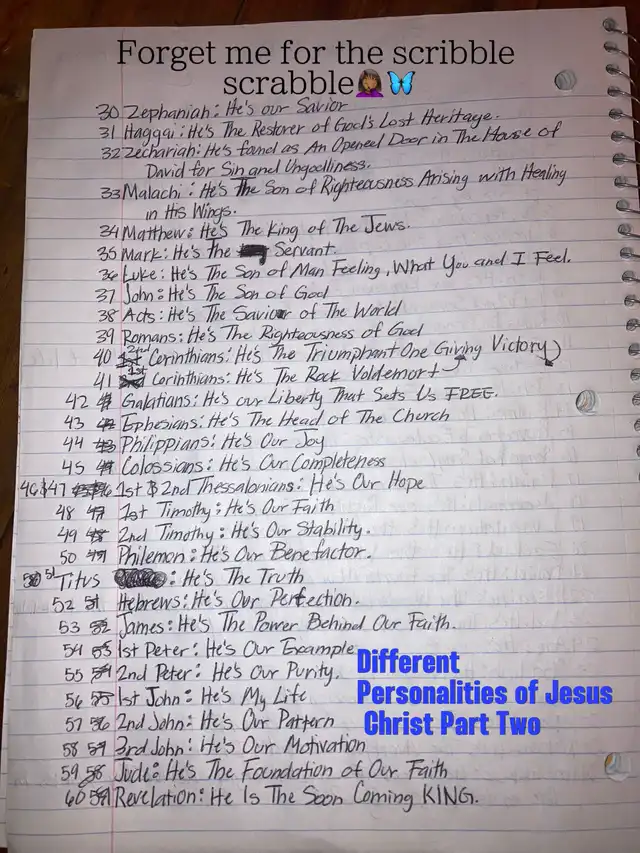 Forget me for the scribble
scrabble🤦🏾‍♀️🦋
30 Zephaniah: He's our Savior
31 Haggai: He's The Restorer of God's Lost Heritage.
32 Zechariah: He's found as An Opened Door in The House of
David for Sin and Ungodliness.
33 Malachi: He's The Son of Righteousness Arising with Healing
in His Wings.
34 Matthew: He's The King of The Jews.
35 Mark: He's the Servant.
36 Luke: He's The Son of Man Feeling, What You and I Feel.
37 John: He's The Son of God
38 Acts: He's The Savior of The World
39 Romans: He's The Righteousness of God
40 2nd Corinthians: He's The Triumphant One Giving Victory
41 1st Corinthians: He's The Rock Voldemort
42 Galatians: He's our Liberty That Sets Us FREE.
43 Ephesians: He's The Head of The Church
44 43 Philippians: He's Our Joy
45 44 Colossians: He's Our Completeness
46$47 1st $ 2nd Thessalonians: He's Our Hope
48 47 1st Timothy: He's Our Faith
49 48 2nd Timothy: He's Our Stability.
50 49 Philemon: He's Our Benefactor.
51 Titus : He's The Truth
52 51 Hebrews: He's Our Perfection.
53 52 James: He's The Power Behind Our Faith.
54 53 1st Peter: He's Our Example
55 54 2nd Peter: He's Our Purity.
56 55 1st John: He's My Life
57 56 2nd John: He's Our Pattern
58 57 3rd John: He's Our Motivation
59 58 Jude: He's The Foundation of Our Faith
60 59 Revelation: He Is The Soon Coming KING.
Different
Personalities of Jesus
Christ Part Two